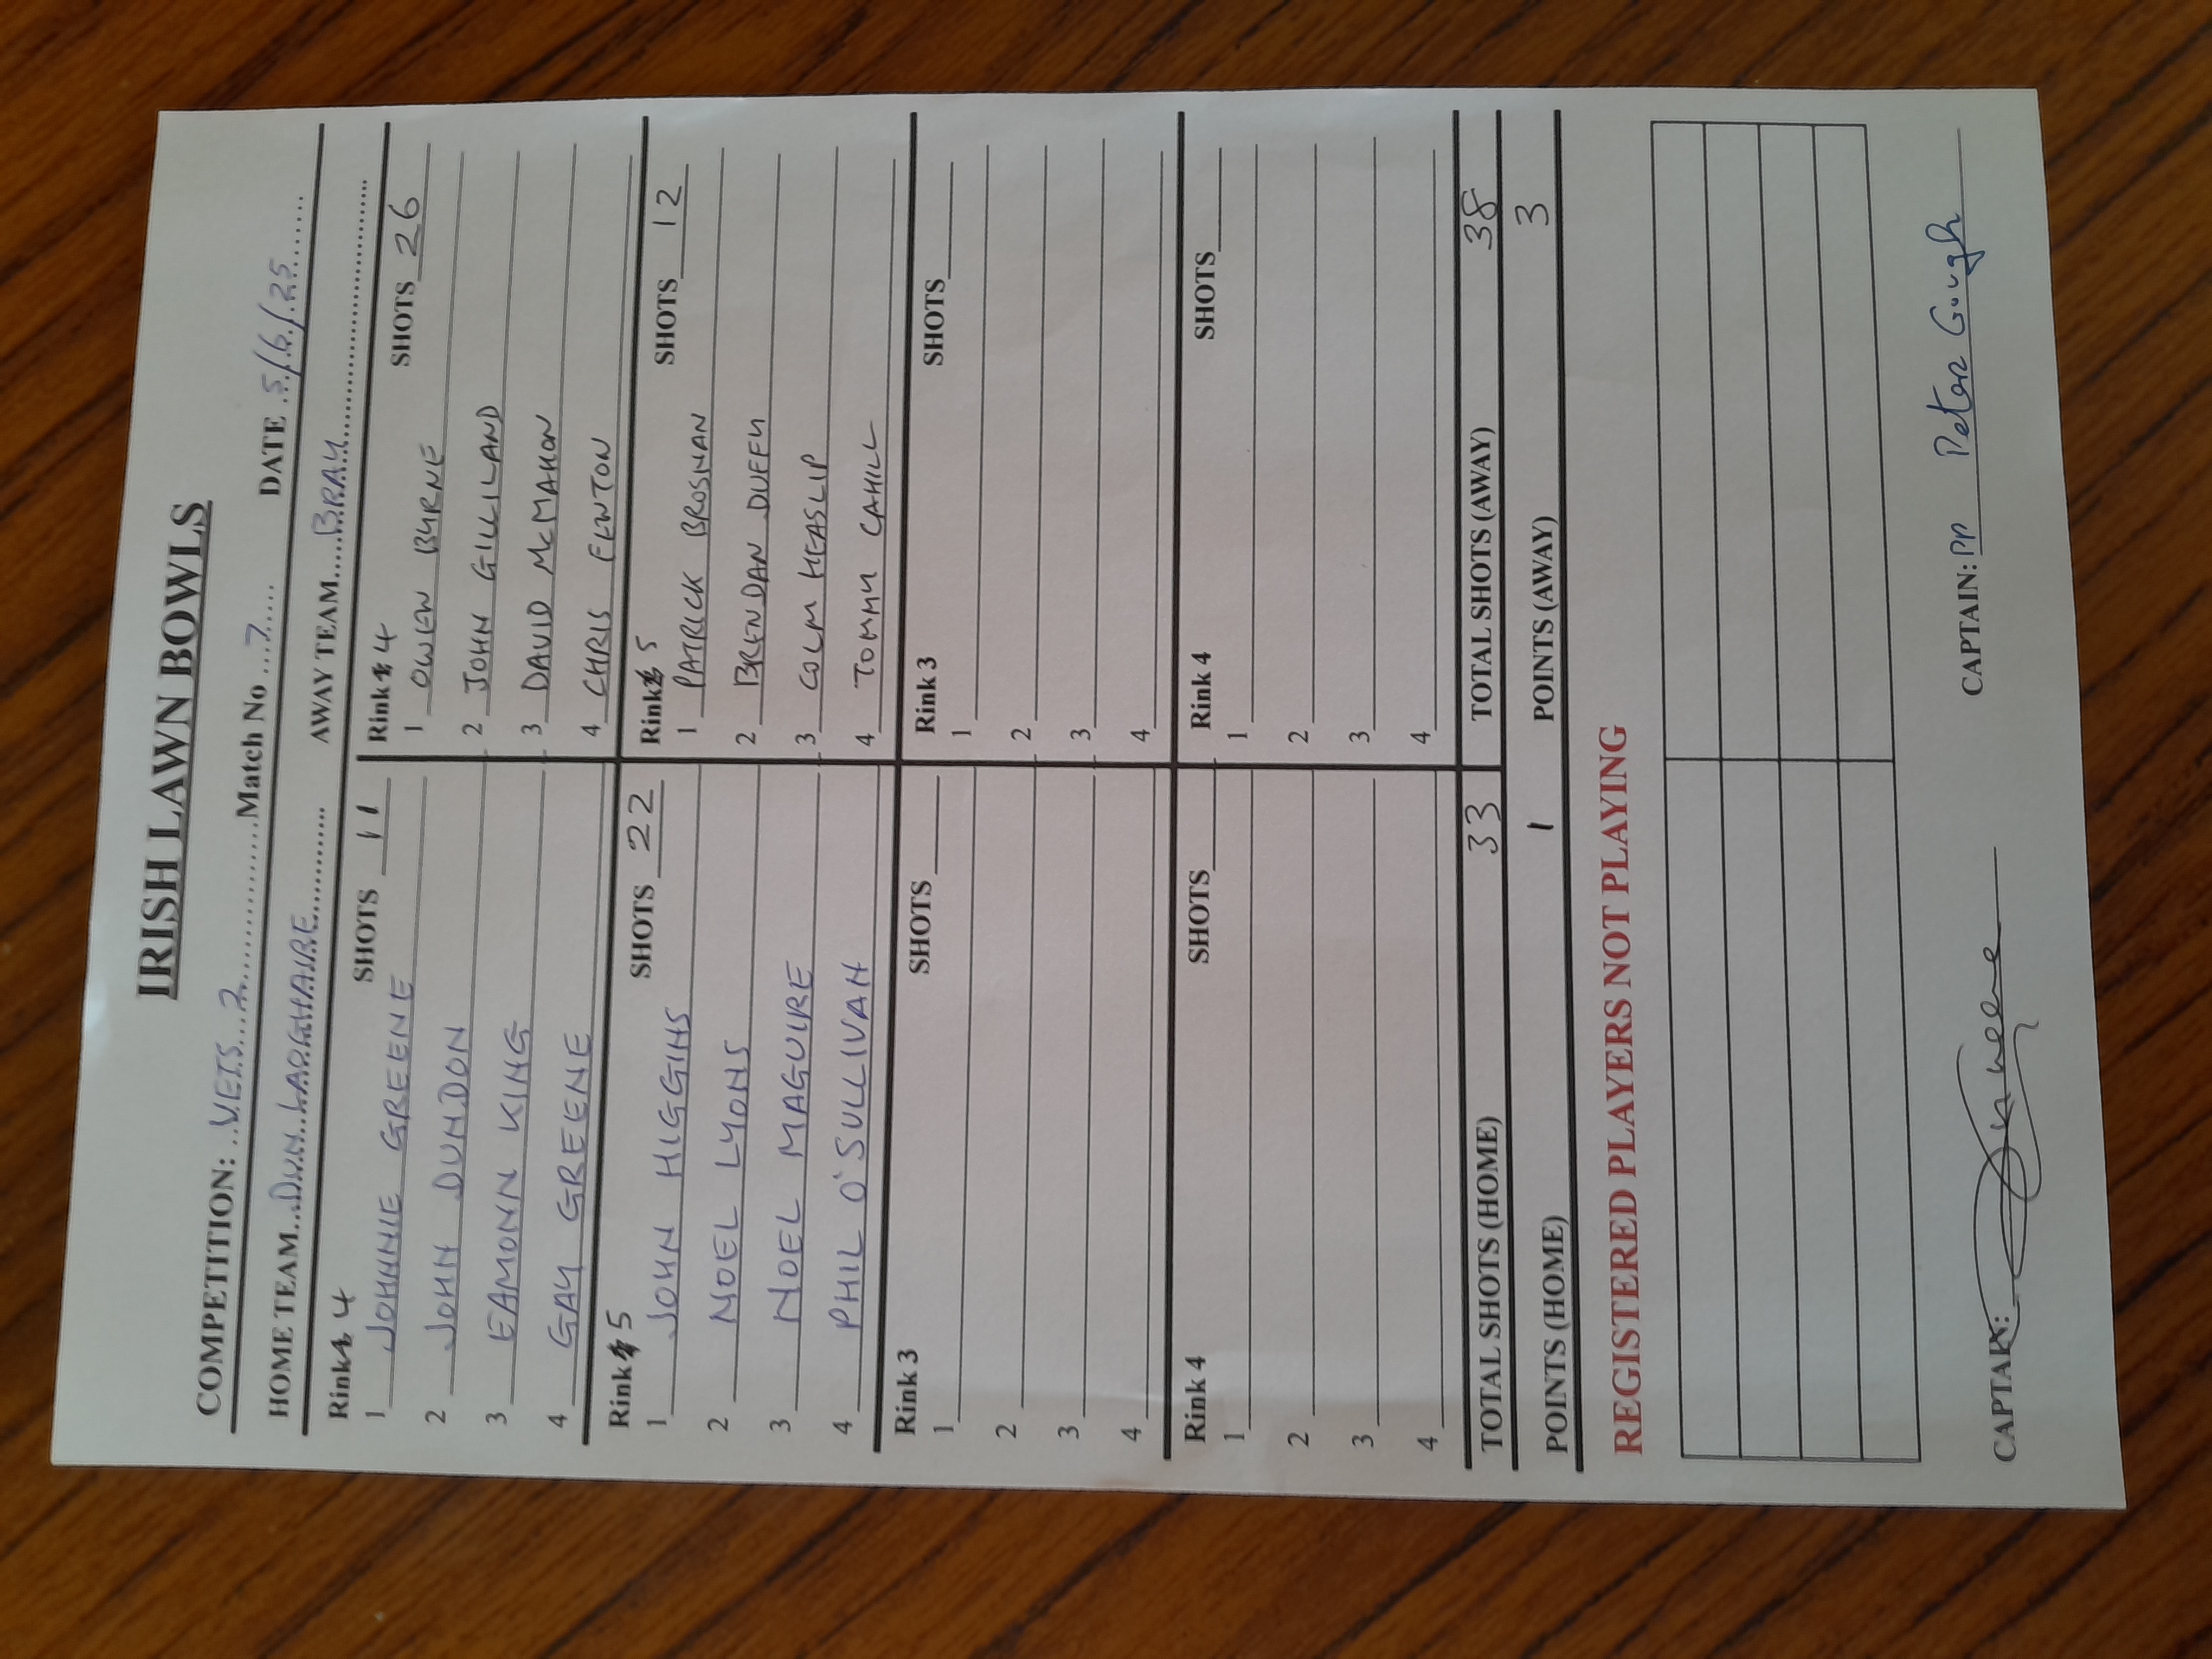 IRISH LAWN BOWLS
COMPETITION: VETS 2 Match No 7 DATE 5/6/25
HOME TEAM DUN LAOGHAIRE AWAY TEAM BRAY
Rink 4 SHOTS 11 Rink 4 SHOTS 26
1 JOHNNIE GREENE 1 OWEN BYRNE
2 JOHN DUNDON 2 JOHN GILLILAND
3 EAMONN KING 3 DAVID McMAHON
4 GAY GREENE 4 CHRIS FENTON
Rink 5 SHOTS 22 Rink 5 SHOTS 12
1 JOHN HIGGINS 1 PATRICK BROSNAN
2 NOEL LYONS 2 BRENDAN DUFFY
3 NOEL MAGUIRE 3 COLM HEASLIP
4 PHIL O'SULLIVAN 4 TOMMY CAHILL
Rink 3 SHOTS Rink 3 SHOTS
1 1
2 2
3 3
4 4
Rink 4 SHOTS Rink 4 SHOTS
1 1
2 2
3 3
4 4
TOTAL SHOTS (HOME) 33 TOTAL SHOTS (AWAY) 38
POINTS (HOME) 1 POINTS (AWAY) 3
REGISTERED PLAYERS NOT PLAYING
CAPTAIN: CAPTAIN: PP Peter Gough